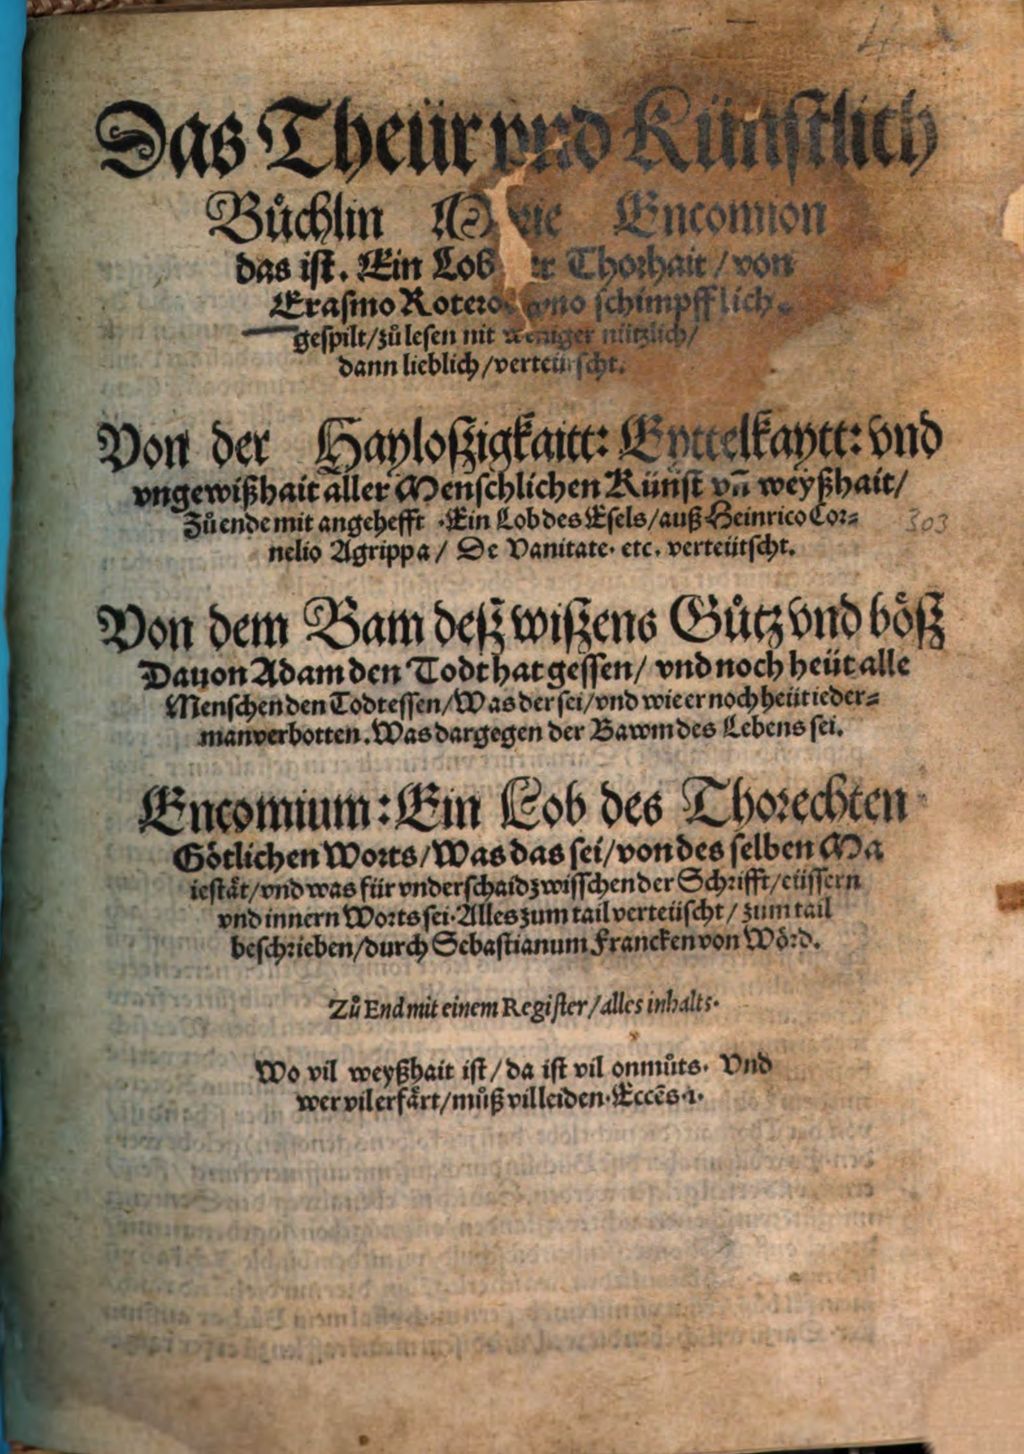 Das Theür vnd Künstlich
Buͤchlin Encomion
das ist. Ein Lob Thorhait / von
Erasmo schimpfflich.
gespilt/zuͦ lesen nit weniger nützlich/
dann lieblich/verteütscht.
Von der Hayloszigkaitt: Eyttelkaytt: vnd
vngewißhait aller Menschlichen Künst vn̄ weyßhait/
Zuͦ ende mit angehefft . Ein Lob des Esels/auß Heinrico Cor⸗
303
nelio Agrippa / De Vanitate. etc. verteütscht.
Von dem Bam desz wiszens Guͤtz vnd boͤsz
Dauon Adam den Todt hat gessen/ vnd noch heüt alle
Menschen den Todt essen/Was der sei/vnd wie er noch heüt ieder⸗
man verbotten. Was dargegen der Bawm des Lebens sei.
Encomium: Ein Lob des Thorechten
Goͤtlichen Worts/Was das sei/von des selben Ma
iestaͤt/vnd was für vnderschaid zwisschen der Schrifft/eüssern
vnd innern Worts sei. Alles zum tail verteüscht/ zum tail
beschrieben/durch Sebastianum Francken von Woͤrd.
Zuͦ End mit einem Register/alles inhalts.
Wo vil weyßhait ist/da ist vil onmuͦts. Vnd
wer vil erfaͤrt/muͦß vil leiden. Eccēs.1.